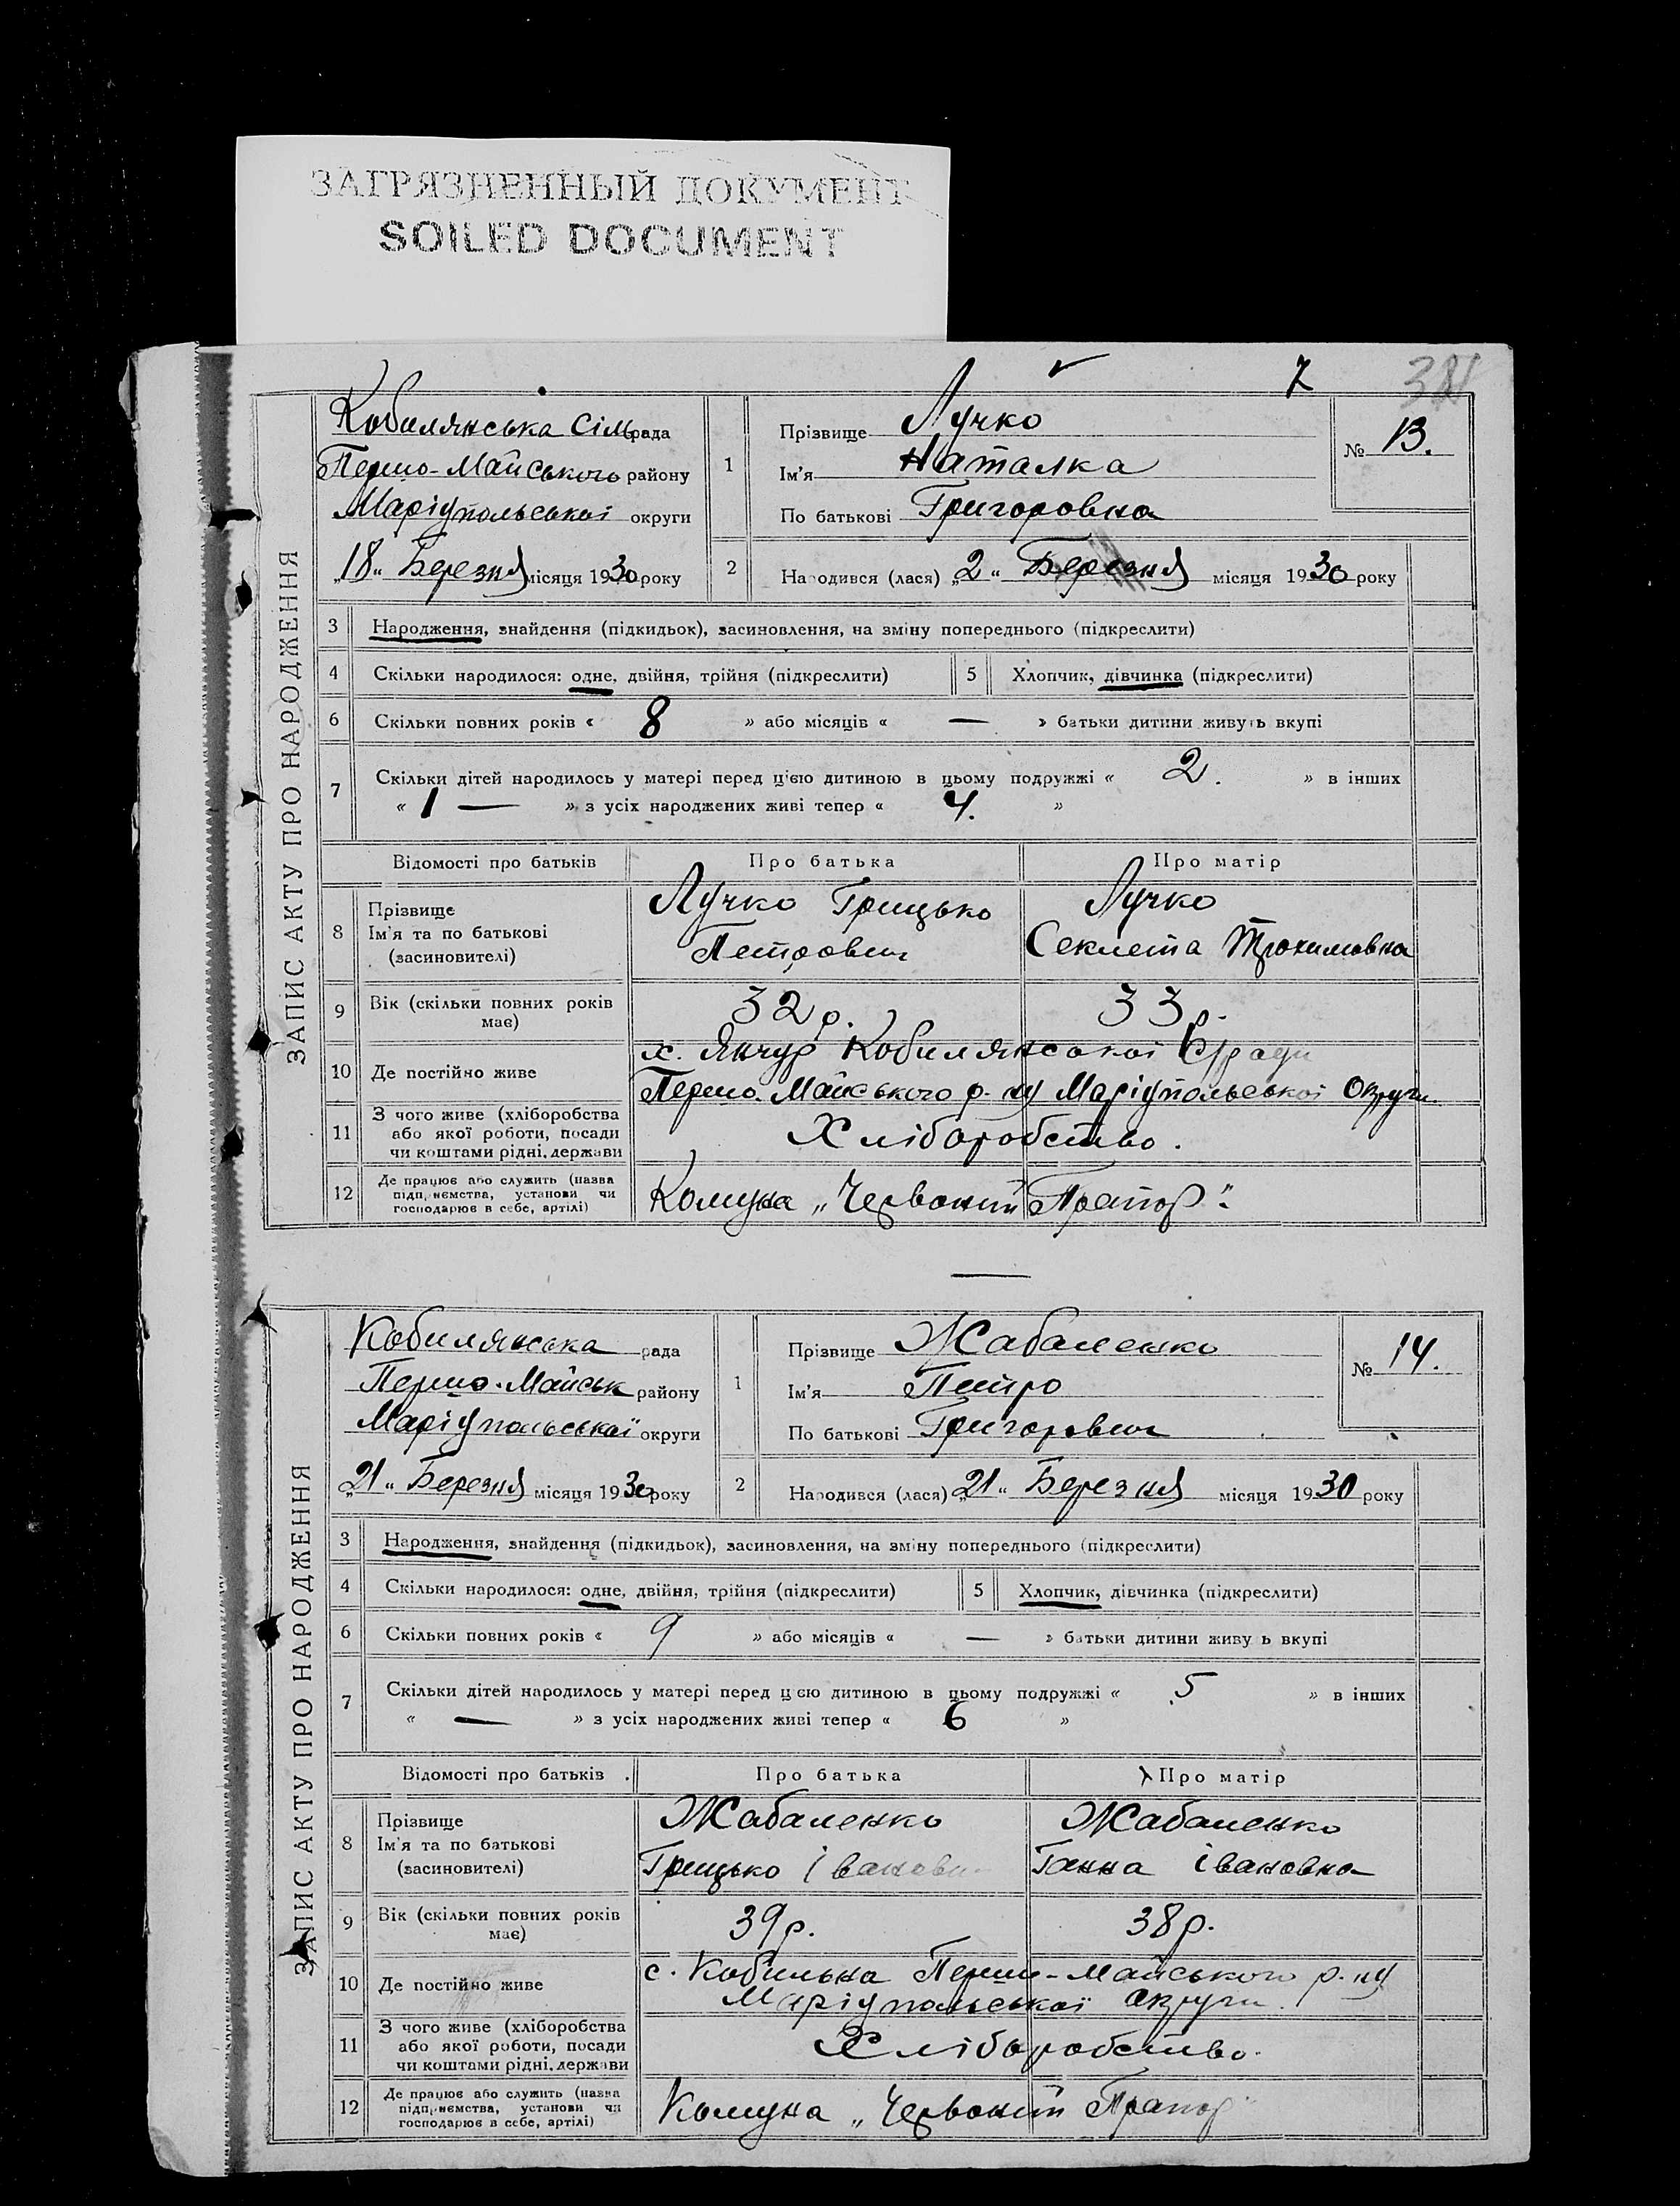 ЗАГРЯЗНЕННЫЙ ДОКУМЕНТ
SOILED DOCUMENT
7
ЗАПИС АКТУ ПРО НАРОДЖЕННЯ
Кобилянська сільрада
Першо-Майського району
Маріупольської округи
„18“ Березня місяця 1930 року
1
Прізвище Лучко
Ім'я Наталка
По батькові Григоровна
№ 13.
2 Народився (лася) „2“ Березня місяця 1930 року
3 Народження, знайдення (підкидьок), засиновлення, на зміну попереднього (підкреслити)
4 Скільки народилося: одне, двійня, трійня (підкреслити) 5 Хлопчик, дівчинка (підкреслити)
6 Скільки повних років « 8 » або місяців « — » батьки дитини живуть вкупі
7 Скільки дітей народилось у матері перед цією дитиною в цьому подружжі « 2. » в інших
« 1 — » з усіх народжених живі тепер « 4. »
Відомості про батьків Про батька Про матір
8 Прізвище
Ім'я та по батькові
(засиновителі)
Лучко Грицько
Петрович
Лучко
Секлета Трохимовна
9 Вік (скільки повних років має) 32 р. 33 р.
10 Де постійно живе х. Янчур Кобилянської с/ради
Першо-Майського р-ну Маріупольської Округи
11 З чого живе (хліборобства
або якої роботи, посади
чи коштами рідні, держави
Хліборобство.
12 Де працює або служить (назва
підприємства, установи чи
господарює в себе, артілі)
Комуна „Червоний Прапор“.
ЗАПИС АКТУ ПРО НАРОДЖЕННЯ
Кобилянська рада
Першо-Майськ району
Маріупольської округи
„21“ Березня місяця 1930 року
1
Прізвище Жабаленко
Ім'я Петро
По батькові Григорович
№ 14.
2 Народився (лася) „21“ Березня місяця 1930 року
3 Народження, знайдення (підкидьок), засиновлення, на зміну попереднього (підкреслити)
4 Скільки народилося: одне, двійня, трійня (підкреслити) 5 Хлопчик, дівчинка (підкреслити)
6 Скільки повних років « 9 » або місяців « — » батьки дитини живу ь вкупі
7 Скільки дітей народилось у матері перед цією дитиною в цьому подружжі « 5 » в інших
« — » з усіх народжених живі тепер « 6 »
Відомості про батьків Про батька Про матір
8 Прізвище
Ім'я та по батькові
(засиновителі)
Жабаленко
Грицько Іванович
Жабаленко
Ганна Івановна
9 Вік (скільки повних років має) 39 р. 38 р.
10 Де постійно живе с. Кобильна Першо-Майського р-ну
Маріупольської округи.
11 З чого живе (хліборобства
або якої роботи, посади
чи коштами рідні, держави
Хліборобство.
12 Де працює або служить (назва
підприємства, установи чи
господарює в себе, артілі)
Комуна „Червоний Прапор“